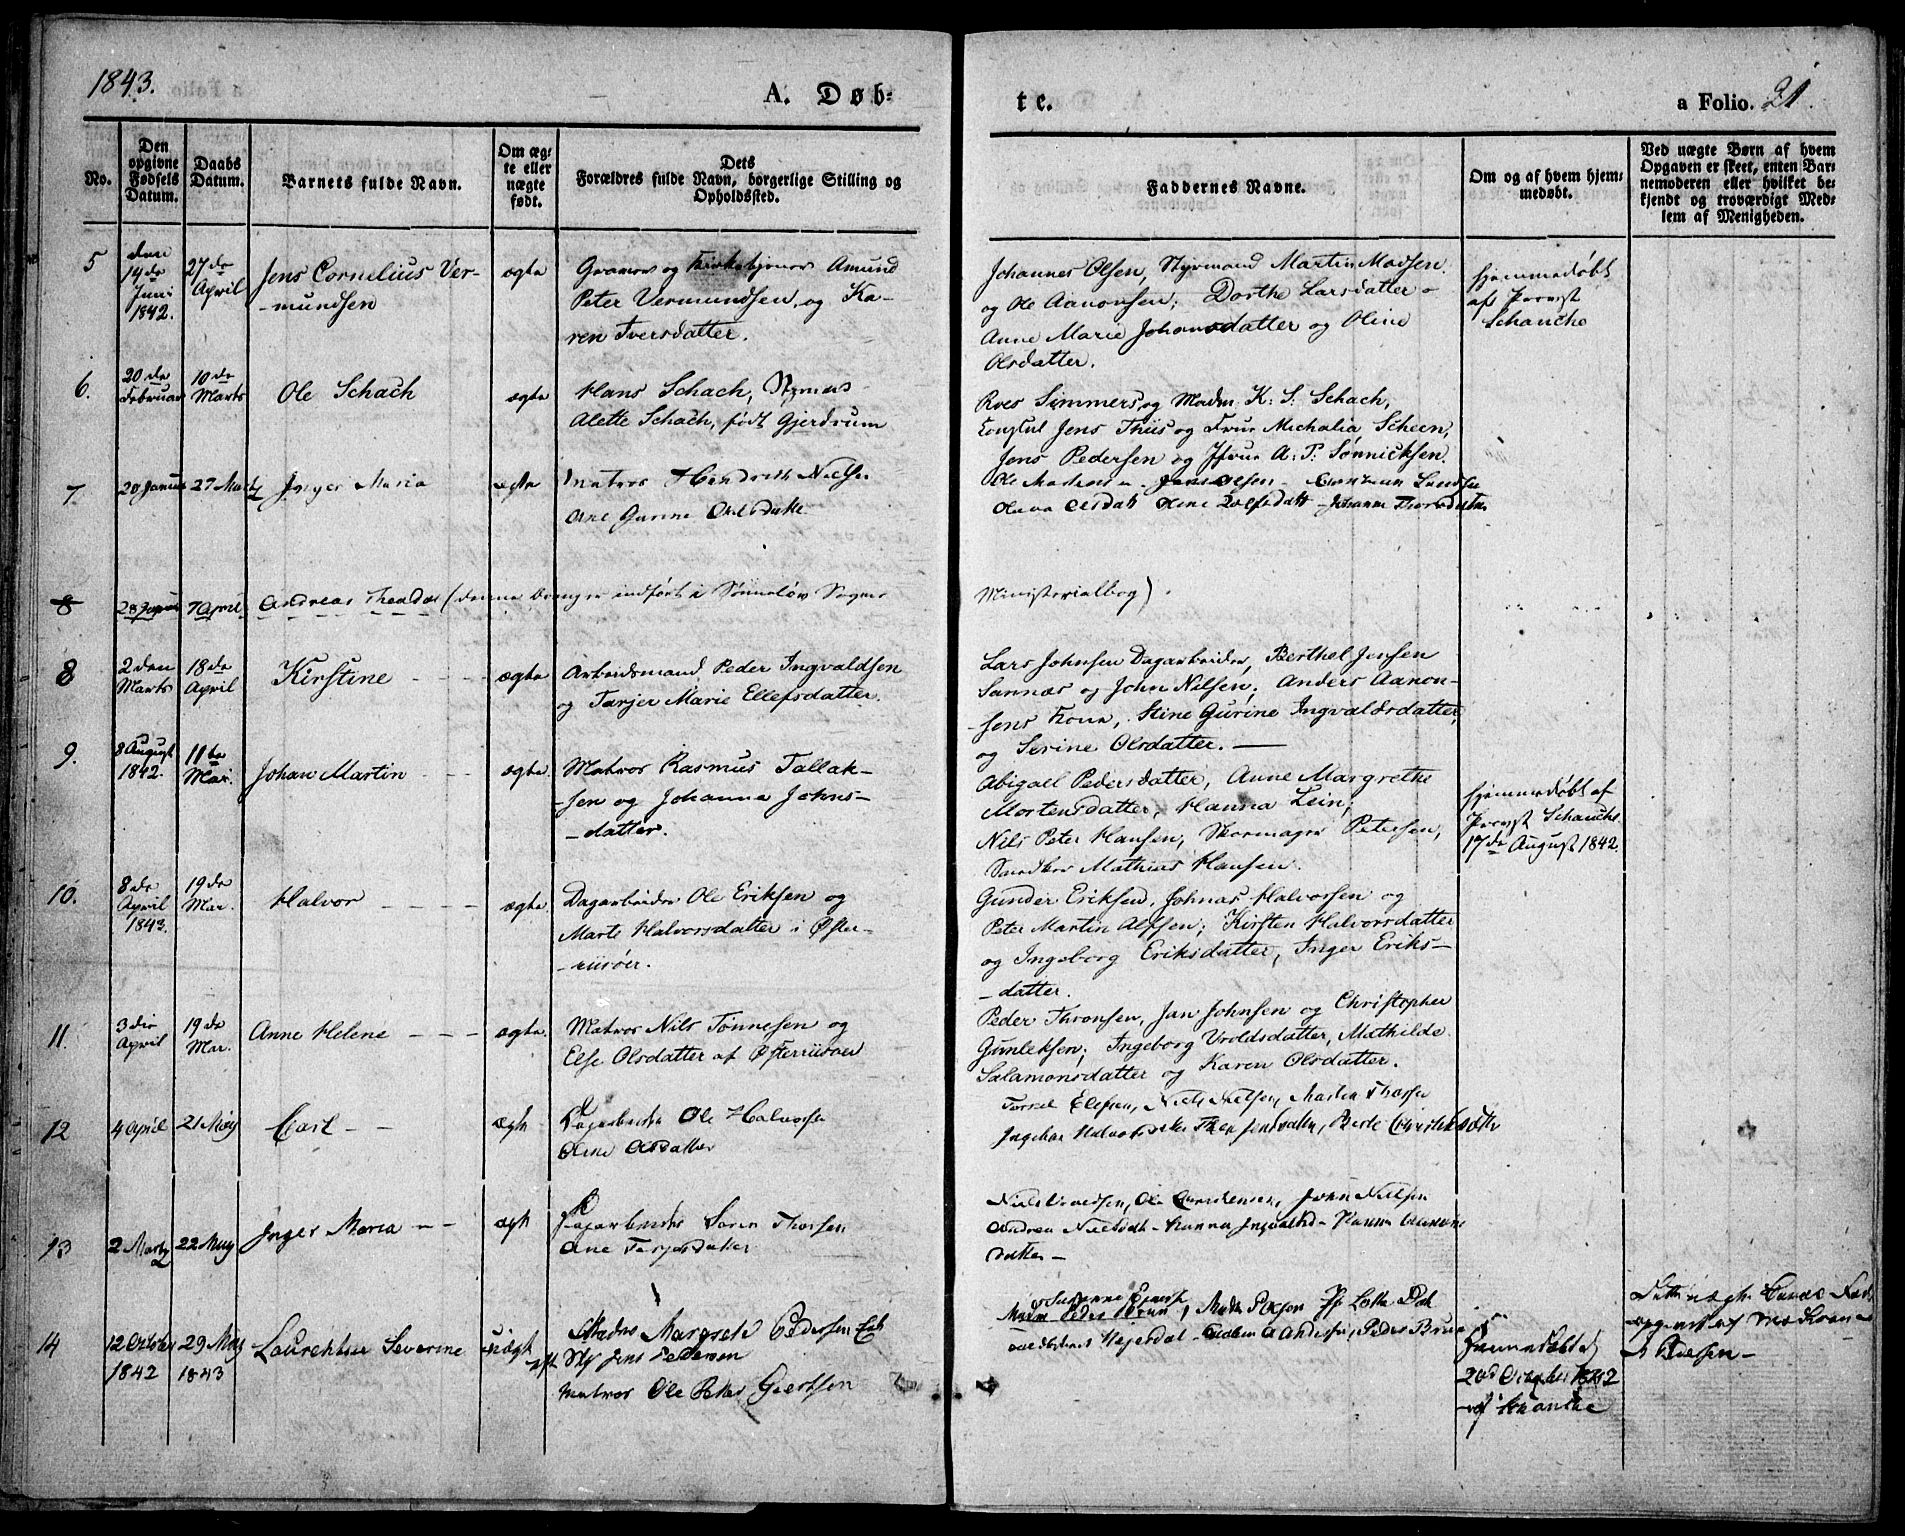 1843.
A. Døb-
te.
a Folio. 21.
No.
Den opgivne Fødsels Datum.
Daabs Datum.
Barnets fulde Navn.
Om ægte eller uægte født.
Dets Forældres fulde Navn, borgerlige Stilling og Opholdssted.
Faddernes Navne.
Om og af hvem hjemmedøbt.
Ved uægte Børn af hvem Opgaven er skeet, enten Barnemoderen eller hvilket bekjendt og troværdigt Medlem af Menigheden.
5
den 14de Juni 1842.
27de April
Jens Cornelius Ver-
-mundsen
ægte
og Kirketjener Amund
Peter Vermundsen, og Ka-
ren Iversdatter.
Johannes Olsen, Styrmand Martin Madsen
og Ole Aanonsen; Dorthe Larsdatter
Anne Marie Johansdatter og Oline
Olsdatter.
hjemmedøbt
af Provst
Schanche
6.
20de Februar
10de Marts
Ole Schach
ægte
Hans Schach,
Alette Schach, født Gjerdrum
Roes Simmers og Madm. K. S. Schach,
Consul Jens Thiis og Frue Michalia Scheen,
Jens Pedersen og Jfrue A. P. Sønnicksen.
7.
20 Januar
27 Marts
Inger Maria
ægte
Matros Hendrik Nielsen
Ane Gurine Olsdatter
Ole Madsen - Jens Olsen -
Olava Olsdatt Oline Rolfsdatt - Johanne Thorsdatter
8
28 Januar
7 April
Andreas Theodor (denne Dreng er indført i Sønneløv Sogns
Ministerialbog).
8
2den Marts
18de April
Kirstine
ægte
Arbeidsmand Peder Ingvaldsen
og Tarjer Marie Ellefsdatter.
Lars Johnsen Dagarbeider, Berthel Jensen
Sannæs og John Nilsen; Anders Aanon-
-sens Kone, Stine Gurine Ingvaldsdatter,
og Serine Olsdatter. —
9.
8 August 1842.
11te Mai.
Johan Martin
ægte
Matros Rasmus Tallak-
-sen og Johanna Johns-
-datter.
Abigael Pedersdatter, Anne Margrethe
Mortensdatter, Hanna Lein;
Nils Peter Hansen, Skomager Petersen,
Snedker Mathias Hansen.
hjemmedøbt af
Provst Schanche
17de August 1842.
10.
8de April 1843.
19de Mai.
Halvor
ægte
Dagarbeider Ole Eriksen og
Marte Halvorsdatter i Øster-
-riisöer.
Gunder Eriksen, Johnas Halvorsen og
Peter Martin Alfsen; Kirsten Halvorsdatter
og Ingeborg Eriksdatter, Inger Eriks-
-datter.
11.
3die April
19de Mai.
Anne Helene
ægte
Matros Nils Tønnesen og
Else Olsdatter af Østerriisöer
Peder Thronsen, Jan Johnsen og Christopher
Gunleksen; Ingeborg Vroldsdatter, Mathilde
Salamonsdatter og Karen Olsdatter.
12
4 April
21 May
Carl
ægte
Dagarbeider Ole Halvorsen
Ane Olsdatter
Ellefsen, Niels Nielsen, Martin Thorsen
Ingebor Halvorsdatter Jensdatter, Berte Christensdatter
13
2 Marts
22 May
Inger Maria
ægte
Dagarbeider Søren Thorsen
Ane Terjesdatter
Niels Ole John Nielsen
Andrea Nielsdatt - Hanna Ingvalsd - Hanna
datter -
14
12 October 1842
29 May 1843
Laurentse Severine
uægte
Margrete Pedersen
Jens Pedersen
Matros Ole Peter Geertsen
Susanne
Madm Peder Bruun, Lotte
Hejerdal - Andersen, Peder Bruun
Hjemmedøbt
20d October 1842
af Schanche
Pedersen -